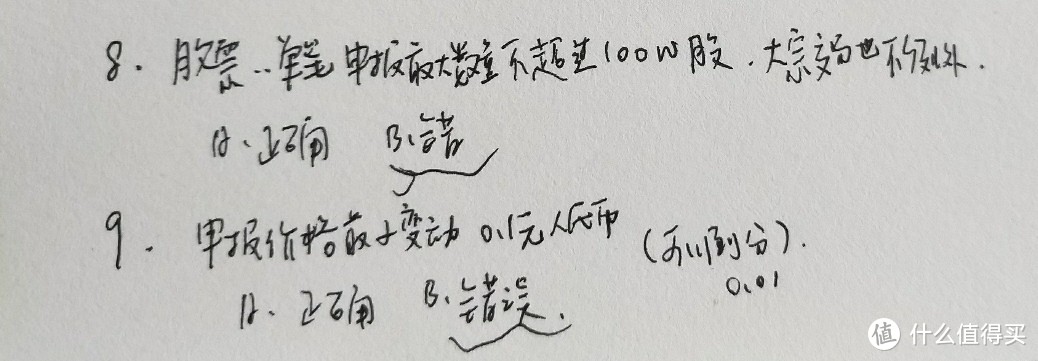 8. 股票..单笔申报最大数量不超过100W股.大宗交易也不例外.
A、正确 B、错
9. 申报价格最小变动0.1元人民币(可以到分).
0.01
A、正确 B、错误.
值 什么值得买